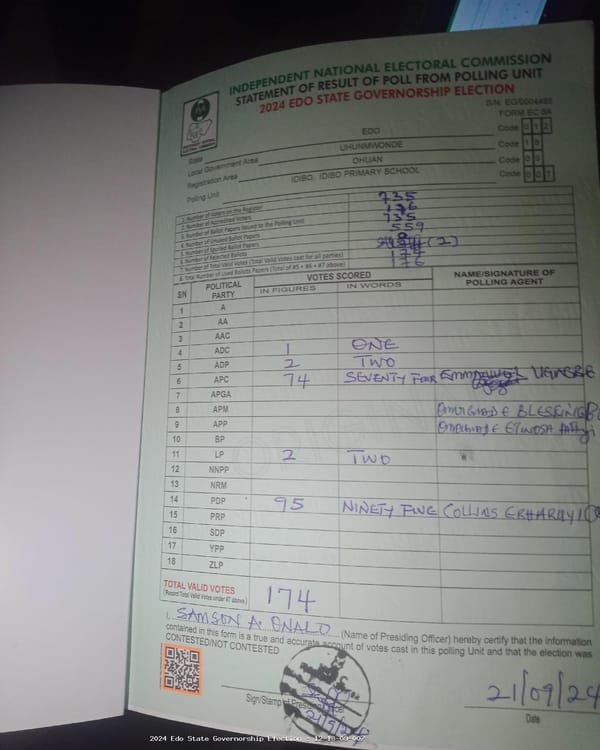 INDEPENDENT NATIONAL ELECTORAL COMMISSION
STATEMENT OF RESULT OF POLL FROM POLLING UNIT
2024 EDO STATE GOVERNORSHIP ELECTION
S/N: EG/0004485
FORM EC 8A
State EDO Code 012
Local Government Area UHUNMWONDE Code 18
Registration Area OHUAN Code
Polling Unit IDIBO, IDIBO PRIMARY SCHOOL Code 001
1. Number of Voters on the Register 735
2. Number of Accredited Voters 176
3. Number of Ballot Papers Issued to the Polling Unit 735
4. Number of Unused Ballot Papers 559
5. Number of Spoiled Ballot Papers 0
6. Number of Rejected Ballots (2)
7. Number of Total Valid Votes (Total Valid Votes cast for all parties) 174
8. Total Number of Used Ballots Papers (Total of #5 + #6 + #7 above) 176
SN POLITICAL PARTY VOTES SCORED NAME/SIGNATURE OF POLLING AGENT
IN FIGURES IN WORDS
1 A
2 AA
3 AAC
4 ADC 1 ONE
5 ADP 2 TWO
6 APC 74 SEVENTY FOUR
7 APGA
8 APM BLESSING
9 APP
10 BP
11 LP 2 TWO
12 NNPP
13 NRM
14 PDP 95 NINETY FIVE COLLINS
15 PRP
16 SDP
17 YPP
18 ZLP
TOTAL VALID VOTES 174
(Record Total Valid Votes under #7 above)
I, SAMSON A. ONALO (Name of Presiding Officer) hereby certify that the information
contained in this form is a true and accurate account of votes cast in this polling Unit and that the election was
CONTESTED/NOT CONTESTED
21/09/24
Sign/Stamp of Presiding Officer
21/9/24
Date
2024 Edo State Governorship Election - 12-18-00-007